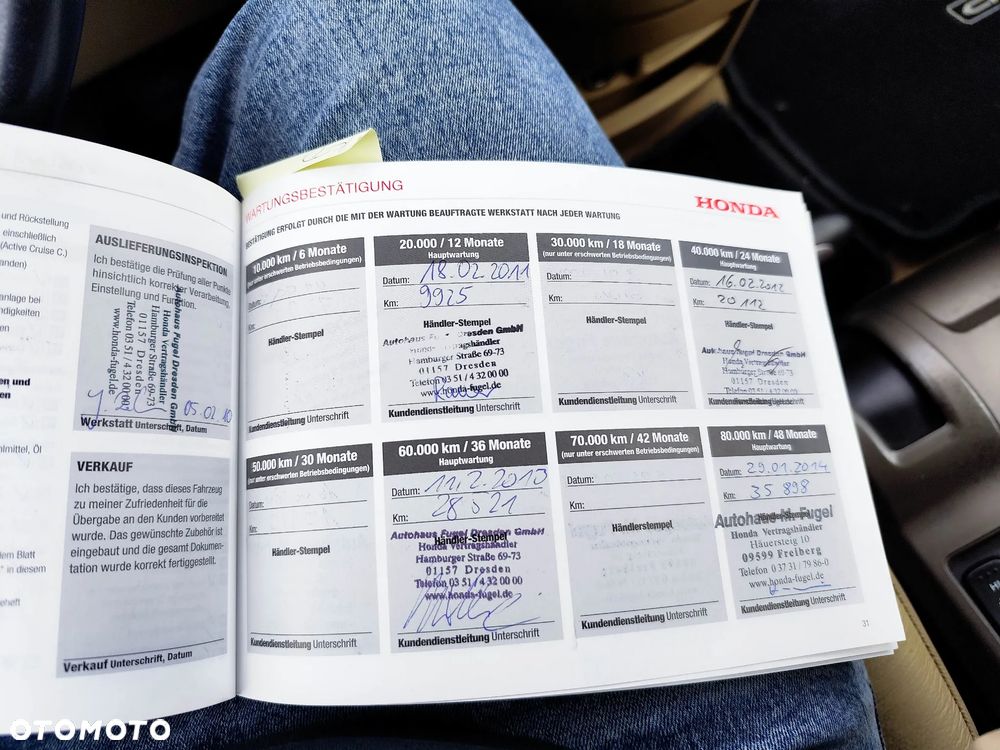 und Rückstellung
einschließlich
(Active Cruise C.)
anden)
anlage bei
ndigkeiten
en und
en
mittel, Öl
dem Blatt
" in diesem
eheft
AUSLIEFERUNGSINSPEKTION
Ich bestätige die Prüfung aller Punkte
hinsichtlich korrekter Verarbeitung,
Einstellung und Funktion.
Autohaus Fugel Dresden GmbH
Honda Vertragshändler
Hamburger Straße 69-73
01157 Dresden
Telefon 03 51 / 4 32 00 00
www.honda-fugel.de
05.02.10
Werkstatt Unterschrift, Datum
VERKAUF
Ich bestätige, dass dieses Fahrzeug
zu meiner Zufriedenheit für die
Übergabe an den Kunden vorbereitet
wurde. Das gewünschte Zubehör ist
eingebaut und die gesamt Dokumen-
tation wurde korrekt fertiggestellt.
Verkauf Unterschrift, Datum
WARTUNGSBESTÄTIGUNG
HONDA
BESTÄTIGUNG ERFOLGT DURCH DIE MIT DER WARTUNG BEAUFTRAGTE WERKSTATT NACH JEDER WARTUNG
10.000 km / 6 Monate
(nur unter erschwerten Betriebsbedingungen)
Händler-Stempel
Kundendienstleitung Unterschrift
20.000 / 12 Monate
Hauptwartung
Datum: 18.02.2011
Km: 9925
Händler-Stempel
Autohaus Fugel Dresden GmbH
Honda Vertragshändler
Hamburger Straße 69-73
01157 Dresden
Telefon 03 51 / 4 32 00 00
www.honda-fugel.de
Kundendienstleitung Unterschrift
30.000 km / 18 Monate
(nur unter erschwerten Betriebsbedingungen)
Datum:
Km:
Händler-Stempel
Kundendienstleitung Unterschrift
40.000 km / 24 Monate
Hauptwartung
Datum: 16.02.2012
Km: 20112
Händler-Stempel
Autohaus Fugel Dresden GmbH
Honda Vertragshändler
Hamburger Straße 69-73
01157 Dresden
Telefon 03 51 / 4 32 00 00
Kundendienstleitung
50.000 km / 30 Monate
(nur unter erschwerten Betriebsbedingungen)
Datum:
Km:
Händler-Stempel
Kundendienstleitung Unterschrift
60.000 km / 36 Monate
Hauptwartung
Datum: 11.2.2013
Km: 28521
Händler-Stempel
Autohaus Fugel Dresden GmbH
Honda Vertragshändler
Hamburger Straße 69-73
01157 Dresden
Telefon 03 51 / 4 32 00 00
www.honda-fugel.de
Kundendienstleitung Unterschrift
70.000 km / 42 Monate
(nur unter erschwerten Betriebsbedingungen)
Datum:
Km:
Händlerstempel
Kundendienstleitung Unterschrift
80.000 km / 48 Monate
Hauptwartung
Datum: 29.01.2014
Km: 35 898
Händler-Stempel
Autohaus M. Fugel
Honda Vertragshändler
Häuersteig 10
09599 Freiberg
Telefon 0 37 31 / 79 86-0
www.honda-fugel.de
Kundendienstleitung Unterschrift
31
OTOMOTO